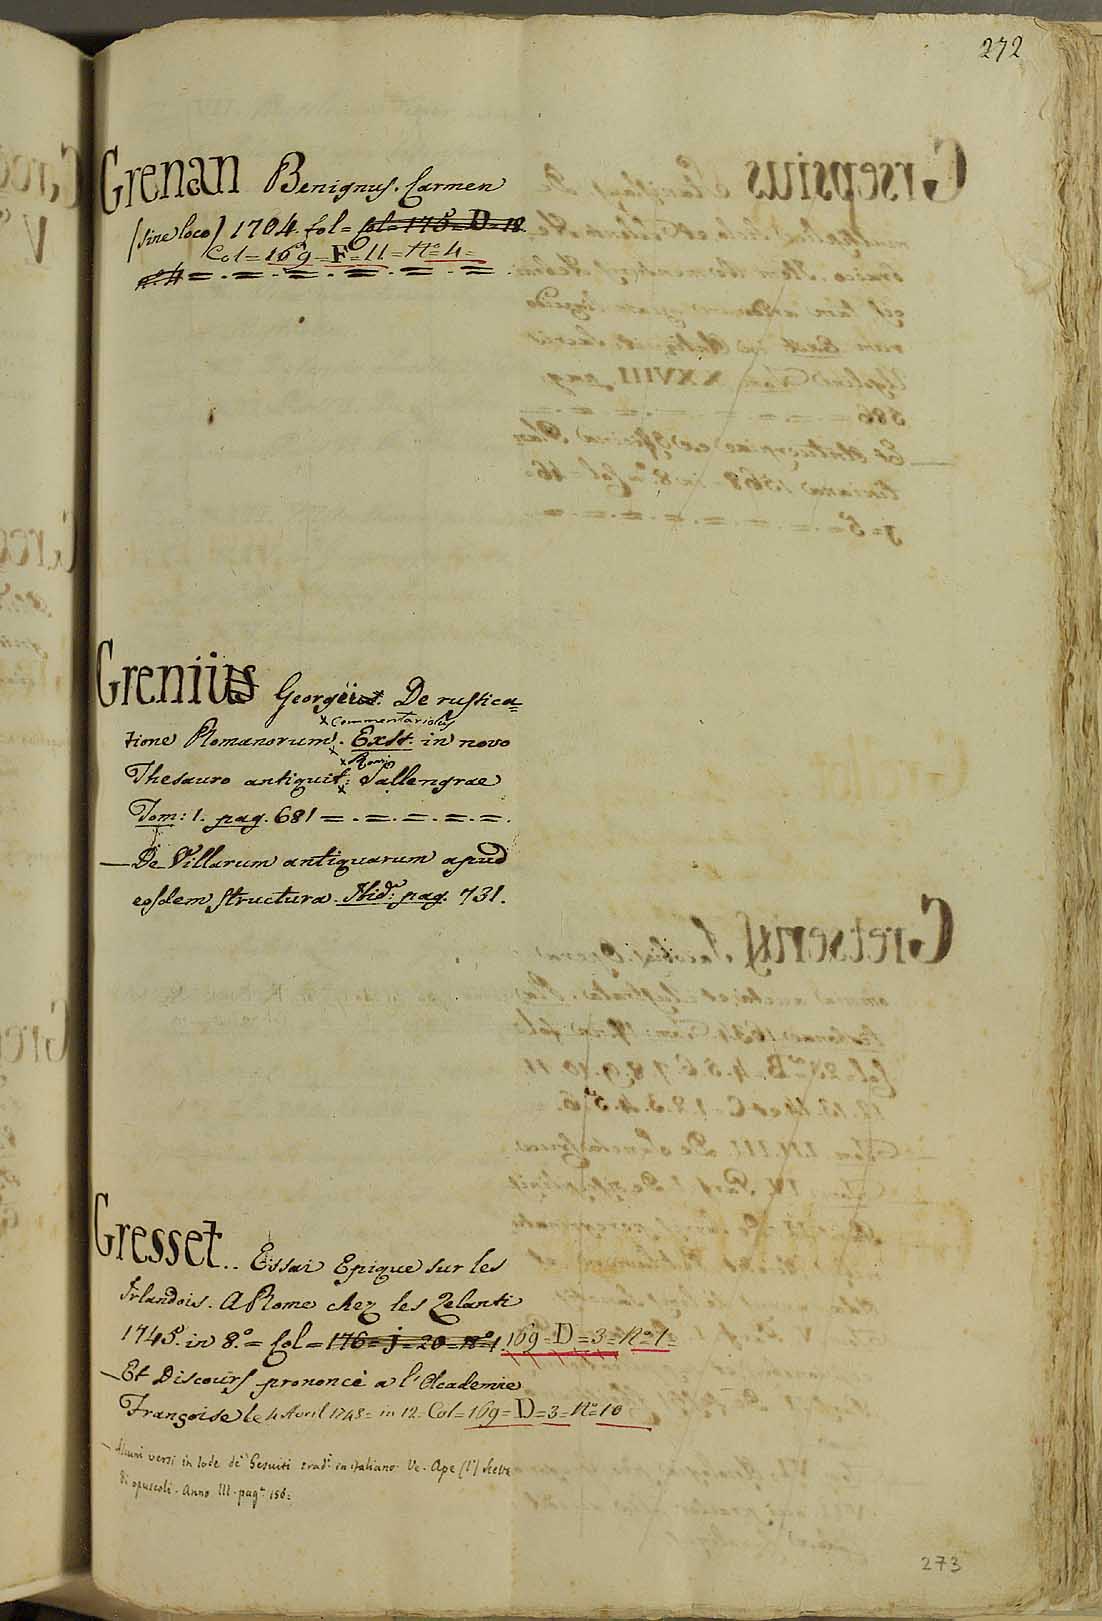 272
Grenan Benignus. Carmen
(sine loco) 1704. fol = Col = 175 = D = 18.
Col = 169 = F = 11 = N.º 4 =
n.º 4 = . = . = . = . = . = .
Grenius Georgius. De rustica=
× Commentariolus
tione Romanorum. Exst. in novo
× Rom:
Thesauro antiquit: Sallengrae
Tom: 1. pag. 681 = . = . = . = . = .
— De Villarum antiquarum apud
eosdem structura. Ibid: pag. 731.
Gresset.. Essai Epique sur les
Irlandois. A Rome chez les Zelanti
1745. in 8.º = Col = 176 = j = 20 = nº 1. 169 = D = 3 = Nº 1 =
— Et Discours prononcé a l'Academie
Françoise le 4 Avril 1748 = in 12. Col = 169 = D = 3 = Nº 10
— Alcuni versi in lode de' Gesuiti trad: in italiano. Ve. Ape (l') Scelta
di opuscoli. Anno III. pag.ª 156:
273